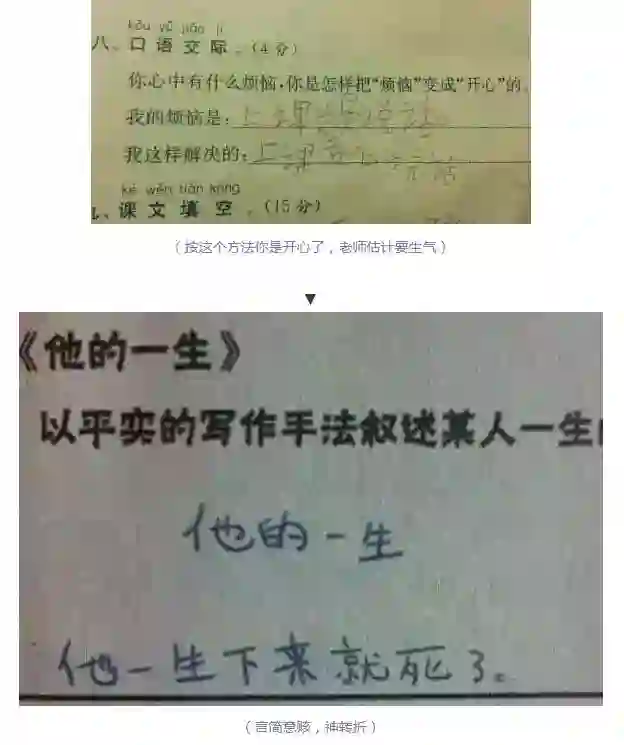 kǒu yǔ jiāo jì
八、口语交际。(4分)
你心中有什么烦恼,你是怎样把“烦恼”变成“开心”的。
我的烦恼是:上课想说话
我这样解决的:上课
kè wén tián kòng
课文填空。(15分)
(按这个方法你是开心了,老师估计要生气)
▼
《他的一生》
以平实的写作手法叙述某人一生
他的一生
他一生下来就死了。
(言简意赅,神转折)